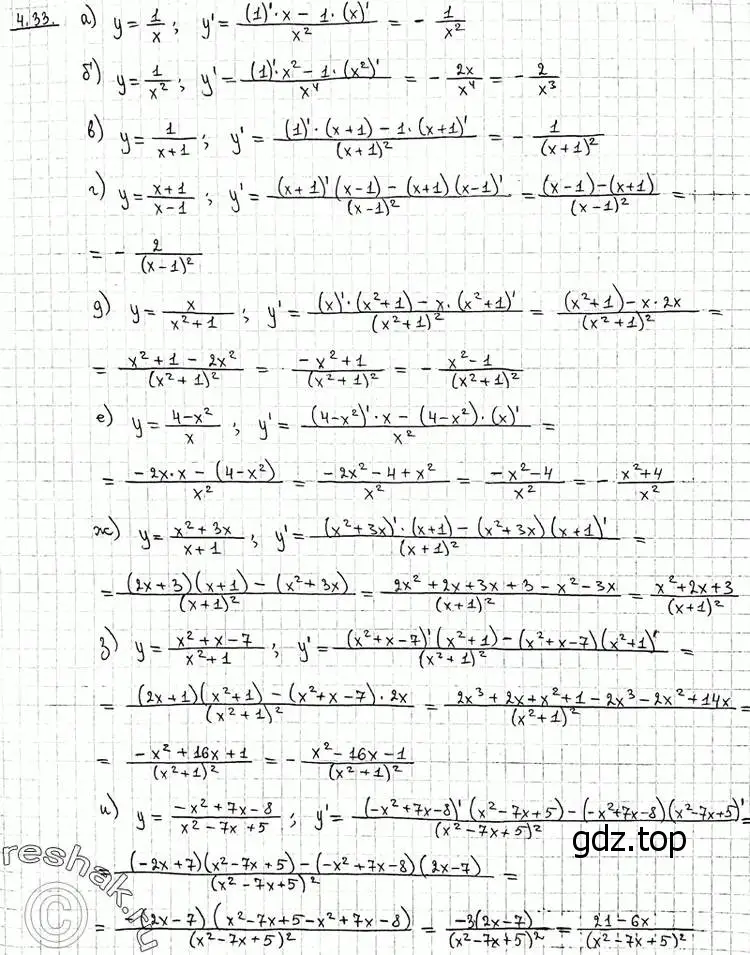 4.33. а) y = 1/x ; y' = ((1)'·x − 1·(x)')/x² = − 1/x²
б) y = 1/x² ; y' = ((1)'·x² − 1·(x²)')/x⁴ = − 2x/x⁴ = − 2/x³
в) y = 1/(x+1) ; y' = ((1)'·(x+1) − 1·(x+1)')/(x+1)² = − 1/(x+1)²
г) y = (x+1)/(x−1) ; y' = ((x+1)'(x−1) − (x+1)(x−1)')/(x−1)² = ((x−1)−(x+1))/(x−1)² =
= − 2/(x−1)²
д) y = x/(x²+1) ; y' = ((x)'·(x²+1) − x·(x²+1)')/(x²+1)² = ((x²+1) − x·2x)/(x²+1)² =
= (x²+1 − 2x²)/(x²+1)² = (−x²+1)/(x²+1)² = − (x²−1)/(x²+1)²
е) y = (4−x²)/x ; y' = ((4−x²)'·x − (4−x²)·(x)')/x² =
= (−2x·x − (4−x²))/x² = (−2x²−4+x²)/x² = (−x²−4)/x² = − (x²+4)/x²
ж) y = (x²+3x)/(x+1) ; y' = ((x²+3x)'·(x+1) − (x²+3x)(x+1)')/(x+1)² =
= ((2x+3)(x+1) − (x²+3x))/(x+1)² = (2x²+2x+3x+3−x²−3x)/(x+1)² = (x²+2x+3)/(x+1)²
з) y = (x²+x−7)/(x²+1) ; y' = ((x²+x−7)'(x²+1) − (x²+x−7)(x²+1)')/(x²+1)² =
= ((2x+1)(x²+1) − (x²+x−7)·2x)/(x²+1)² = (2x³+2x+x²+1−2x³−2x²+14x)/(x²+1)² =
= (−x²+16x+1)/(x²+1)² = − (x²−16x−1)/(x²+1)²
и) y = (−x²+7x−8)/(x²−7x+5) ; y' = ((−x²+7x−8)'(x²−7x+5) − (−x²+7x−8)(x²−7x+5)')/(x²−7x+5)² =
= ((−2x+7)(x²−7x+5) − (−x²+7x−8)(2x−7))/(x²−7x+5)² =
(2x−7)(x²−7x+5−x²+7x−8)/(x²−7x+5)² = −3(2x−7)/(x²−7x+5)² = (21−6x)/(x²−7x+5)²
gdz.top
reshak.ru
©